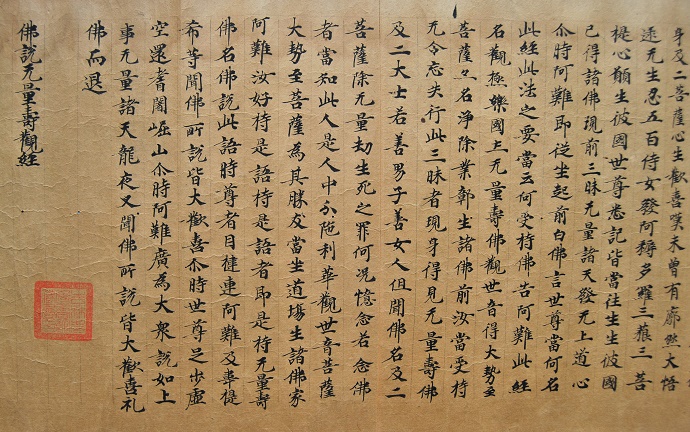 身及二菩薩心生歡喜嘆未曾有廓然大悟
逮无生忍五百侍女發阿耨多羅三藐三菩
提心願生彼國世尊悉記皆當往生生彼國
已得諸佛現前三昧无量諸天發无上道心
尒時阿難即從坐起前白佛言世尊當何名
此經此法之要當云何受持佛告阿難此經
名觀極樂國土无量壽佛觀世音得大勢至
菩薩々名淨除業彰生諸佛前汝當受持
无令忘失行此三昧者現身得見无量壽佛
及二大士若善男子善女人但聞佛名及二
菩薩除无量劫生死之罪何况憶念若念佛
者當知此人是人中分陁利華觀世音菩薩
大勢至菩薩為其勝友當坐道場生諸佛家
阿難汝好持是語持是語者即是持无量壽
佛名佛說此語時尊者目揵連阿難及韋提
希等聞佛所說皆大歡喜尒時世尊足步虛
空還耆闍崛山尒時阿難廣為大衆說如上
事无量諸天龍夜叉聞佛所說皆大歡喜礼
佛而退
佛說无量壽觀經